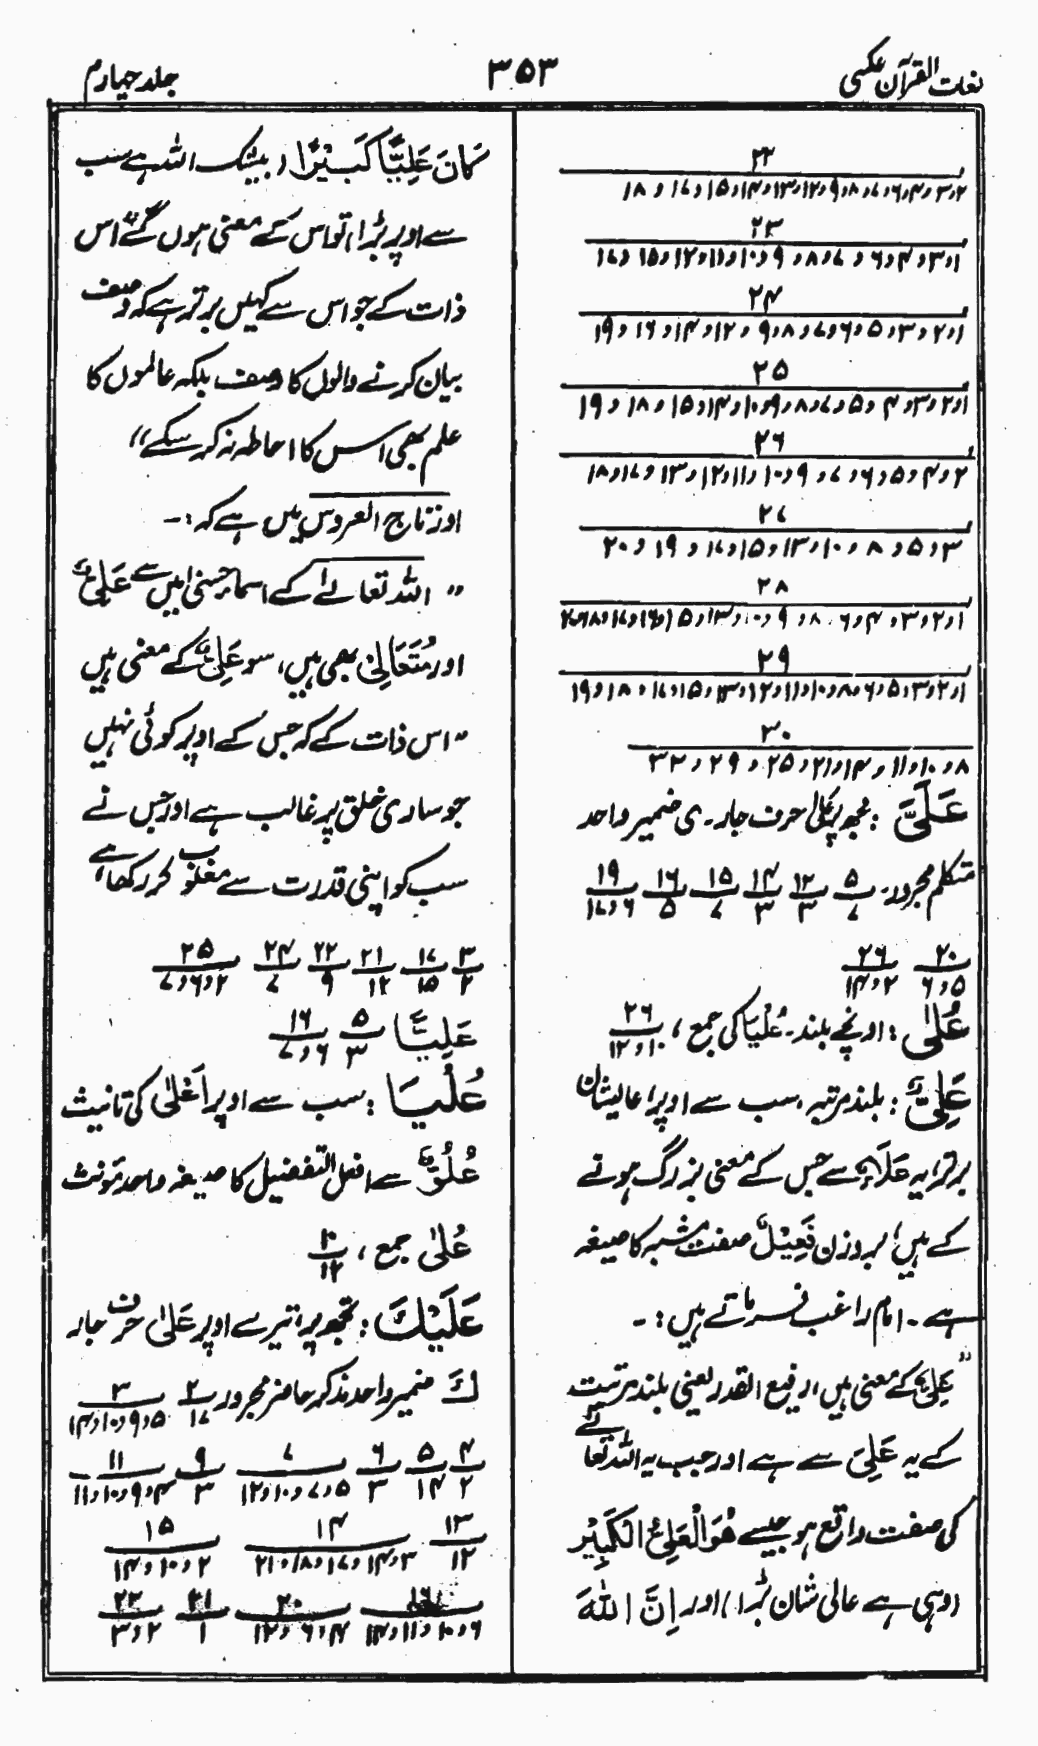 لغات القرآن عکسی
۳۵۳
جلد چہارم
۲۲
۲۳
۱و۳و۴و۶و۷و۸و۹و۱۰و۱۱و۱۲و۱۵و۱۷
۲۴
۱و۲و۳و۵و۶و۷و۸و۹و۱۲و۱۴و۱۶و۱۹
۲۵
۱و۲و۳و۴و۵و۷و۸و۹و۱۰و۱۴و۱۵و۱۸و۱۹
۲۶
۲و۴و۵و۶و۷و۹و۱۰و۱۱و۱۲و۱۳و۱۷و۱۸
۲۷
۳و۵و۸و۱۰و۱۳و۱۵و۱۷و۱۹و۲۰
۲۸
۲۹
۱و۲و۳و۵و۶و۸و۱۰و۱۱و۱۲و۱۳و۱۵و۱۷و۱۸و۱۹
۳۰
۸و۱۰و۱۱و۱۴و۲۱و۲۵و۲۹و۳۳
عَلَیَّ : مجھ پر، عَلٰی حرف جار۔ ی ضمیر واحد
متکلم مجرور۔ ۵/۷ ۱۲/۳ ۱۴/۳ ۱۵/۷ ۱۶/۵ ۱۹/۶و۱۷
۲۰/۵و۶ ۲۶/۲و۱۴
عُلٰی : اونچے بلند۔ عُلْیَا کی جمع، ۲۶/۱۰و۱۲
عَلِیٌّ : بلند مرتبہ، سب سے اوپر، عالیشان
برتر، یہ عَلَاءٌ سے جس کے معنی بزرگ ہونے
کے ہیں، بروزن فَعِیْلٌ صفت مشبہ کا صیغہ
ہے۔ امام راغب فرماتے ہیں :۔
”عَلِیٌّ کے معنی ہیں، رفیع القدر یعنی بلند مرتبت
کے یہ عَلِیَ سے ہے اور جب یہ اللہ تعالےٰ
کی صفت واقع ہو جیسے هُوَ الْعَلِیُّ الْکَبِیْرُ
(وہی ہے عالی شان بڑا) اور اِنَّ اللّٰهَ
کَانَ عَلِیًّا کَبِیْرًا (بیشک اللہ ہے سب
سے اوپر بڑا) تو اس کے معنی ہوں گے ”اس
ذات کے جو اس سے کہیں برتر ہے کہ وصف
بیان کرنے والوں کا وصف بلکہ عالموں کا
علم بھی اس کا احاطہ نہ کر سکے“
اور تاج العروس میں ہے کہ :۔
” اللہ تعالےٰ کے اسماء حسنیٰ میں سے عَلِیٌّ
اور مُتَعَالِیْ بھی ہیں، سو عَلِیٌّ کے معنی ہیں
”اس ذات کے کہ جس کے اوپر کوئی نہیں
جو ساری خلق پر غالب ہے اور جس نے
سب کو اپنی قدرت سے مغلوب کر رکھا ہے“
۳/۲ ۱۷/۱۵ ۲۱/۱۲ ۲۲/۹ ۲۴/۷ ۲۵/۲و۶و۷
عَلِیًّا ۵/۳ ۱۶/۶و۷
عُلْیَا : سب سے اوپر، اَعْلٰی کی تانیث
عُلُوٌّ سے افعل التفضیل کا صیغہ واحد مؤنث
عُلٰی جمع، ۱۰/۱۲
عَلَیْكَ : تجھ پر، تیرے اوپر عَلٰی حرف جار
كَ ضمیر واحد مذکر حاضر مجرور ۲/۱۷ ۳/۵و۹و۱۰و۱۴
۴/۲ ۵/۱۴ ۶/۳ ۷/۵و۷و۱۰و۱۲ ۹/۳ ۱۱/۴و۹و۱۰و۱۱
۱۳/۱۲ ۱۴/۳و۱۴و۱۷و۱۸و۲۱ ۱۵/۲و۱۰و۱۴
۱۶/۶و۱۰و۱۱و۱۴ ۲۰/۴و۶و۱۲ ۲۱/۱ ۲۲/۲و۳